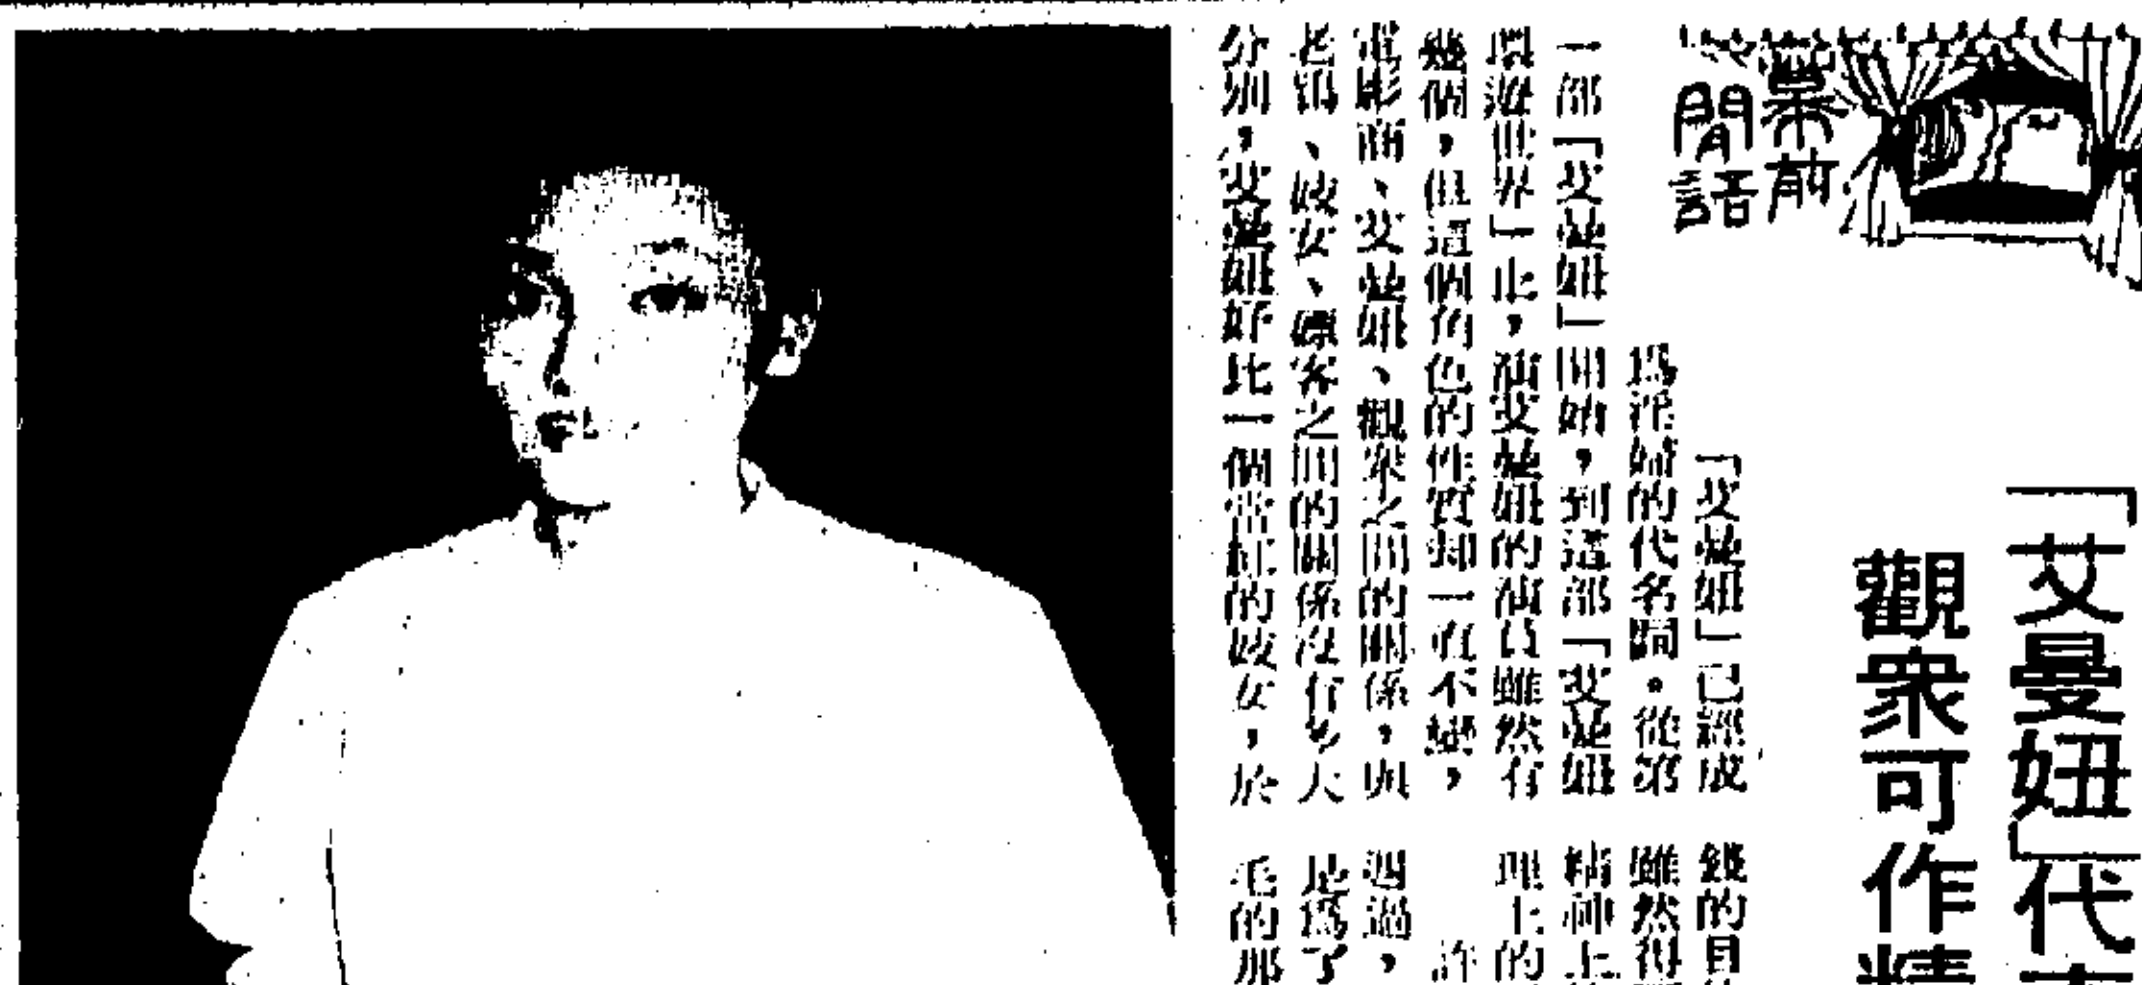 幕前
閒語
「艾曼妞」代
觀眾可作精
「艾曼妞」已經成
爲淫婦的代名詞。從第
一部「艾曼妞」開始，到這部「艾曼妞
環遊世界」止，演艾曼妞的演員雖然有
幾個，但這個角色的性質却一直不變，
電影商、艾曼妞、觀眾之間的關係，與
老鴇、妓女、嫖客之間的關係沒有多大
分別，艾曼妞好比一個當紅的妓女，於
錢的目
雖然得
精神上
理上的
許
過，
是爲了
毛的那